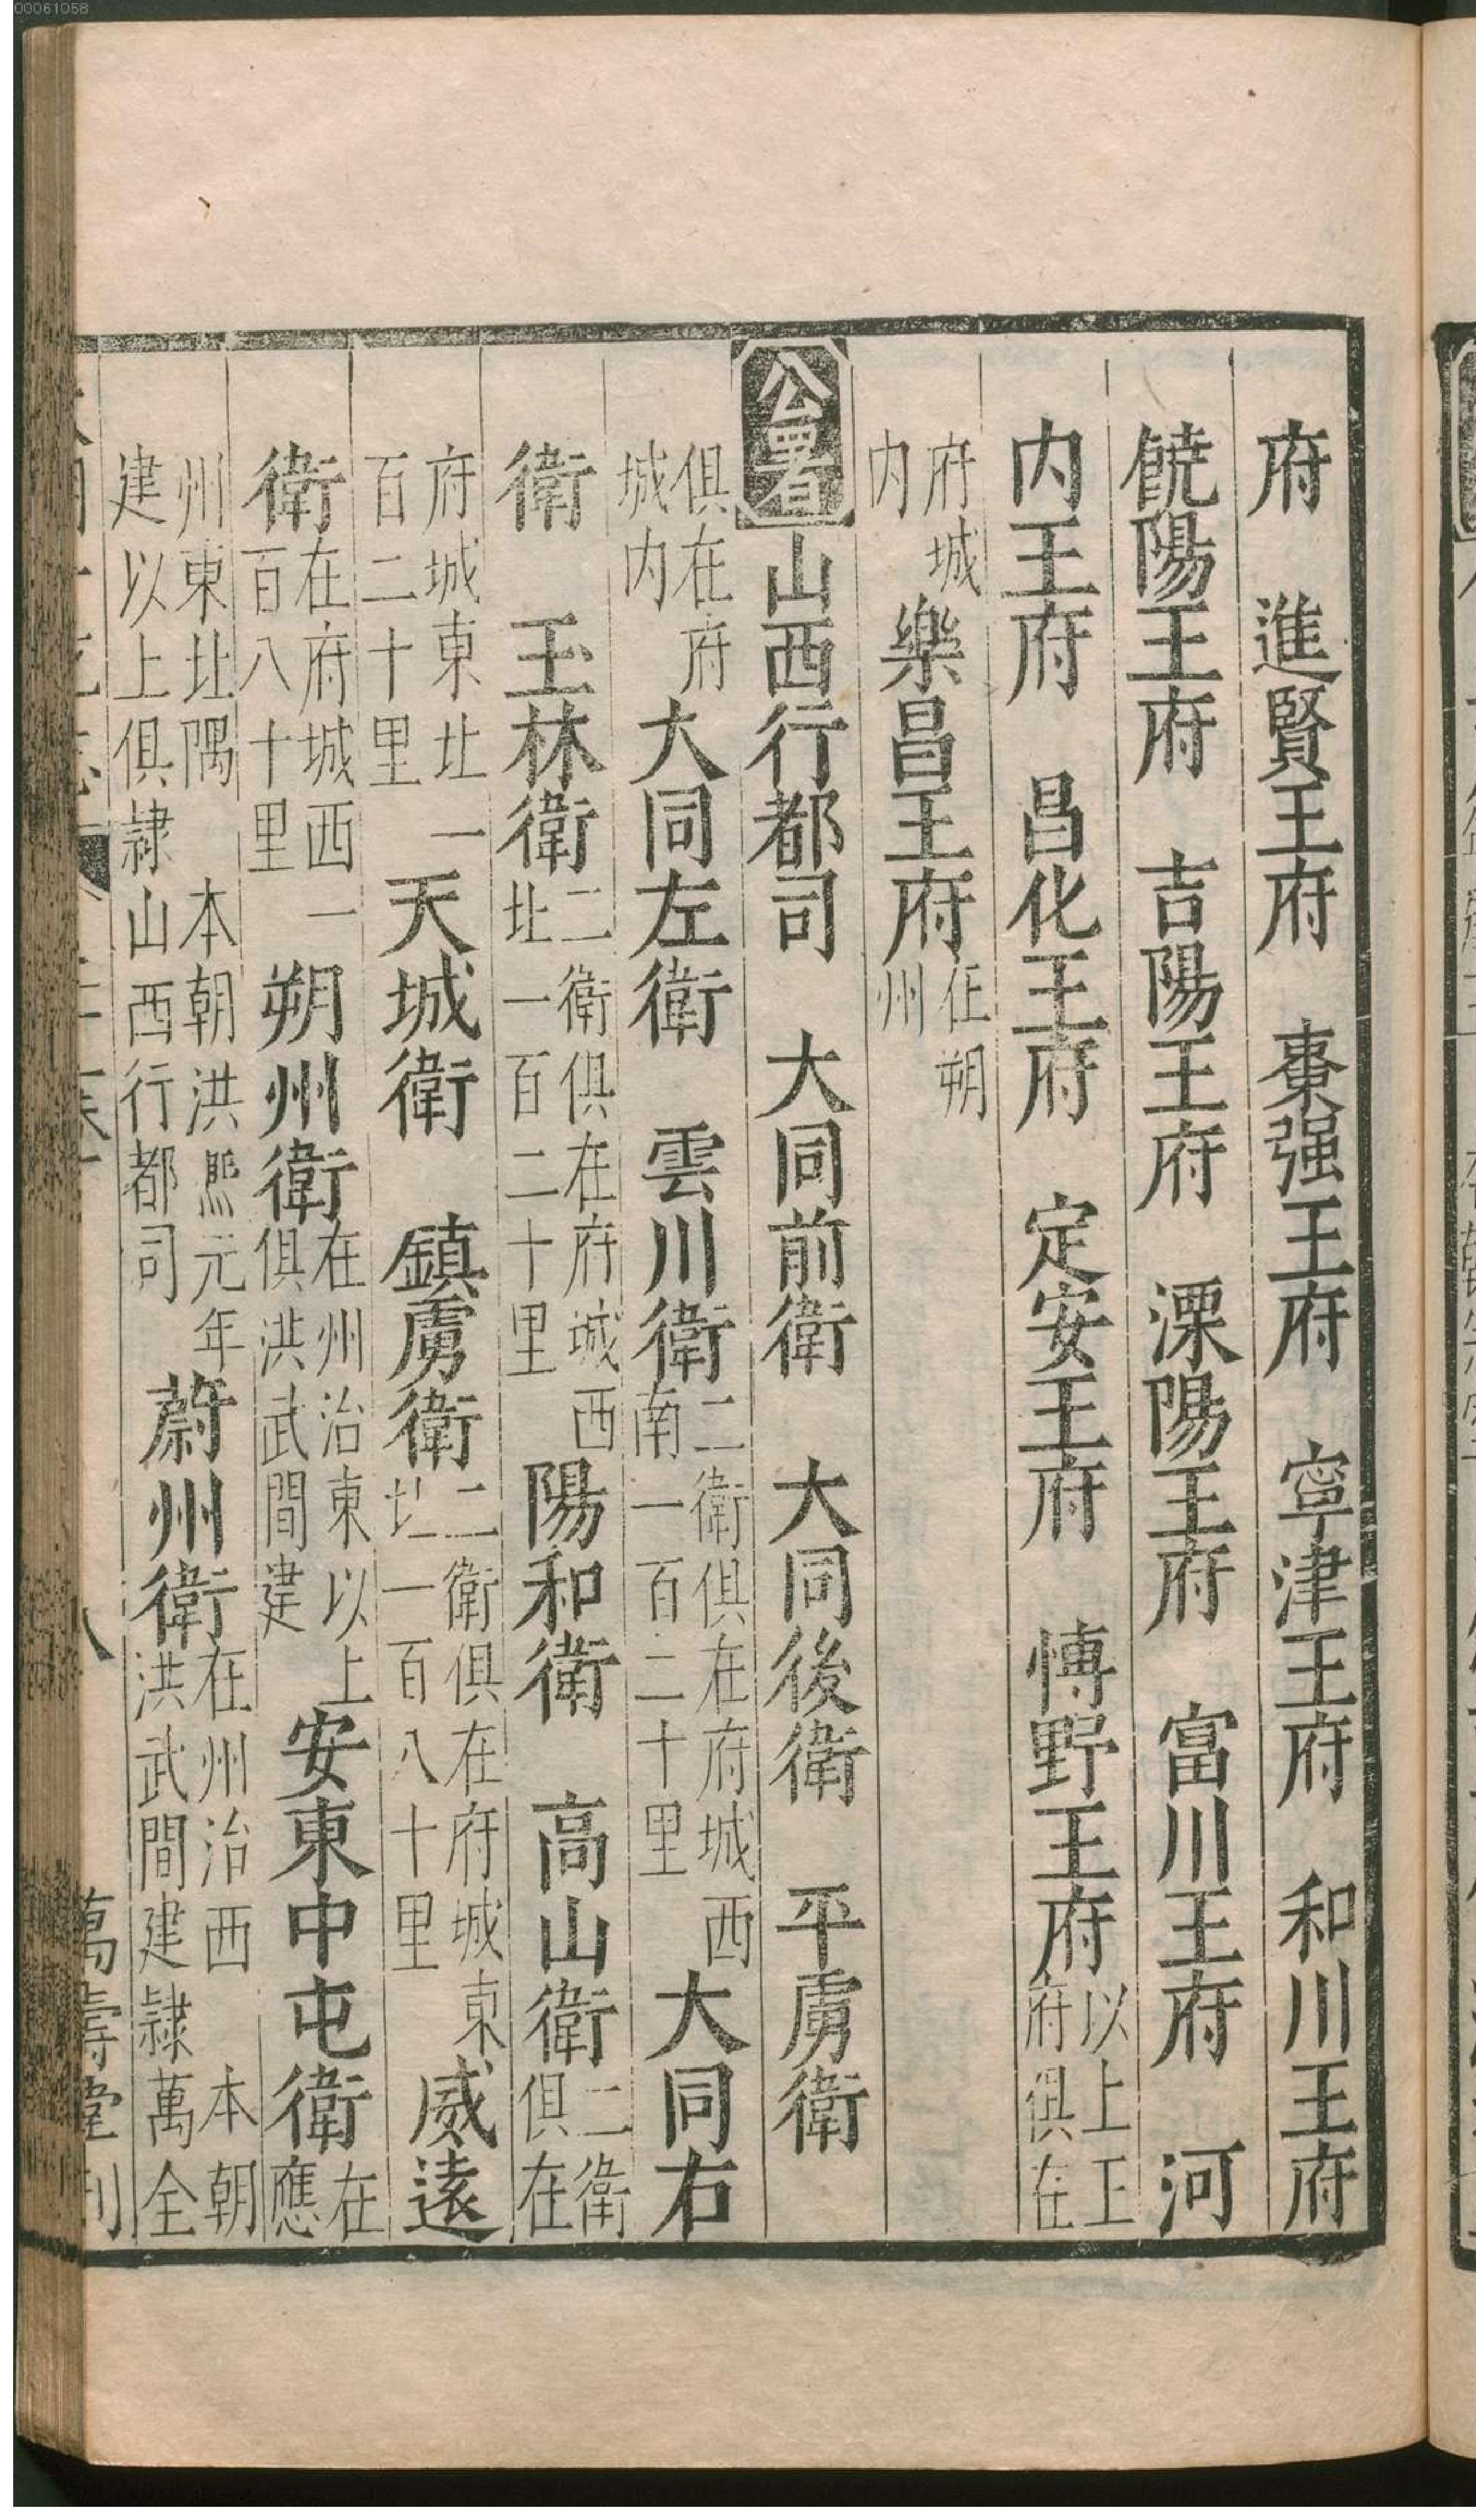 府　進賢王府　棗强王府　寧津王府　和川王府
饒陽王府　吉陽王府　溧陽王府　富川王府　河
内王府　昌化王府　定安王府　博野王府以上王府俱在
府城内樂昌王府在朔州
公署山西行都司　大同前衛　大同後衛　平虜衛
俱在府城内大同左衛　雲川衛二衛俱在府城西南一百二十里大同右
衛　玉林衛二衛俱在府城西北一百二十里陽和衛　高山衛二衛俱在
府城東北一百二十里天城衛　鎮虜衛二衛俱在府城東北一百八十里威遠
衛在府城西一百八十里朔州衛在州治東以上俱洪武間建安東中屯衛在應
州東北隅　本朝洪熈元年建以上俱隷山西行都司蔚州衛在州治西　本朝洪武間建隷萬全
萬壽堂刊
00061058